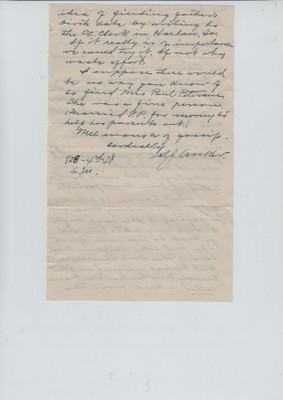 idea of finding father's
birth date by writing to
the Ct. Clerk in Harlan, Ia.
If it really is of importance
we could try it. If not why
waste effort.
I suppose there would
be no way you know of
to find Mrs Paul Petersen.
She was a fine person,
(Married P.P. for money to
help her parents out)
Well enough of gossip.
Cordially
828 - 4th St